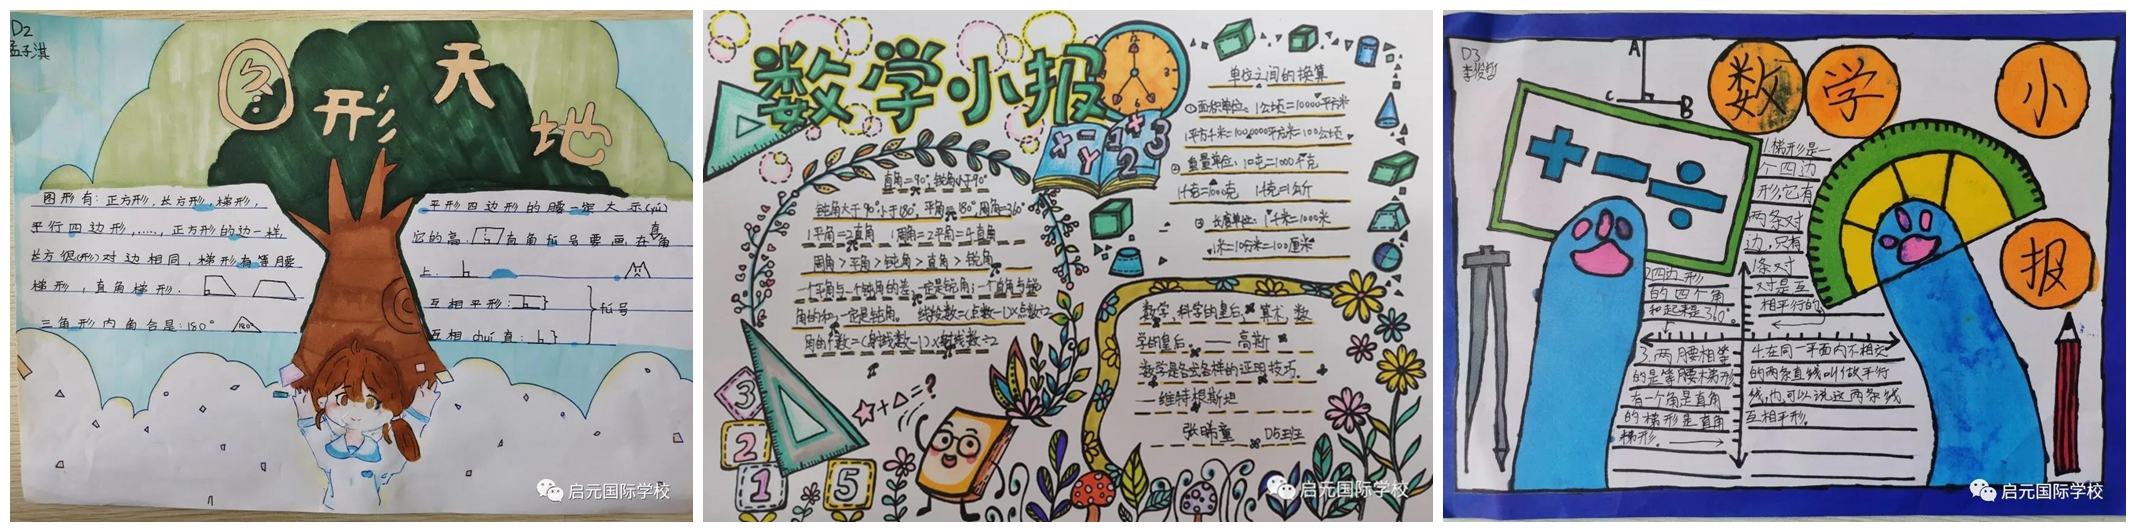 D2
孟子淇
图形天地
图形有:正方形,长方形,梯形,
平行四边形,……,正方形的边一样,
长方很(形)对边相同,梯形有等腰
梯形,直角梯形.
三角形内角合是:180°
180°
平形四边形的腰一定大示(yú)
它的高.
直角拓号要画在直角
上.
互相平形:
互相chuí直:
拓号
数学小报
直角=90°,锐角小于90°
钝角大于90°小于180°,平角=180°,周角=360°
1平角=2直角 1周角=2平角=4直角
周角>平角>钝角>直角>锐角
一个平角与一个钝角的差,一定是锐角;一个直角与锐
角的和,一定是钝角。 线段数=(点数-1)×点数÷2
角的个数=(射线数-1)×射线数÷2
单位之间的换算
①面积单位:1公顷=10000平方米
1平方千米=1000000平方米=100公顷
②重量单位:
1千克=1000克 1千克=1公斤
③长度单位:1千米=1000米
1米=10分米=100厘米
数学,科学的皇后;算术,数
学的皇后。 ——高斯
数学是各式各样的证明技巧.
——维特根斯坦
张晞童 D5班
X
Y
1
2
3
3
2
1
5
+
=?
D3
A
C
B
数学小报
1.梯形是一
个四边
形,它有
两条对
边,只有
1条对
对是互
相平行的
2四边形
的四个角
和起来是360°
3.两腰相等
的是等腰梯形
有一个角是直角
的梯形是直角
梯形.
4.在同一平面内不相交
的两条直线叫做平行
线,也可以说这两条线
互相平形.
启元国际学校
启元国际学校
启元国际学校